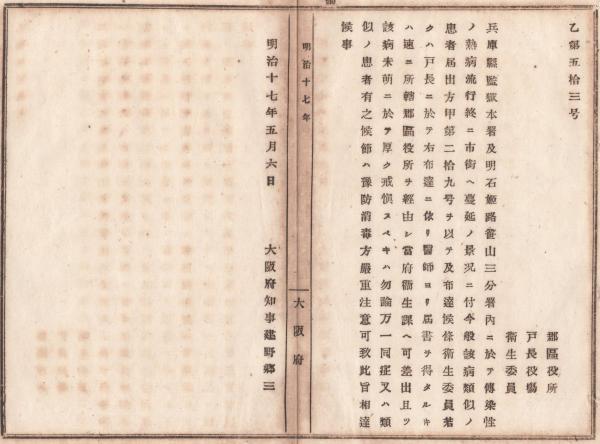 乙第五拾三号
郡區役所
戸長役塲
衛生委員
兵庫縣監獄本署及明石姫路笹山三分署內ニ於テ傳染性
ノ熱病流行終ニ市街ヘ蔓延ノ景况ニ付今般該病類似ノ
患者屆出方甲第二拾九号ヲ以テ及布達候條衛生委員若
クハ戸長ニ於テ右布達ニ依リ醫師ヨリ屆書ヲ得タルキ
ハ速ニ所轄郡區役所ヲ經由シ當府衛生課ヘ可差出且ツ
該病未萌ニ於テ厚ク戒愼スベキハ勿論万一同症又ハ類
似ノ患者有之候節ハ豫防消毒方嚴重注意可致此旨相達
候事
明治十七年
大阪府
明治十七年五月六日
大阪府知事建野鄉三